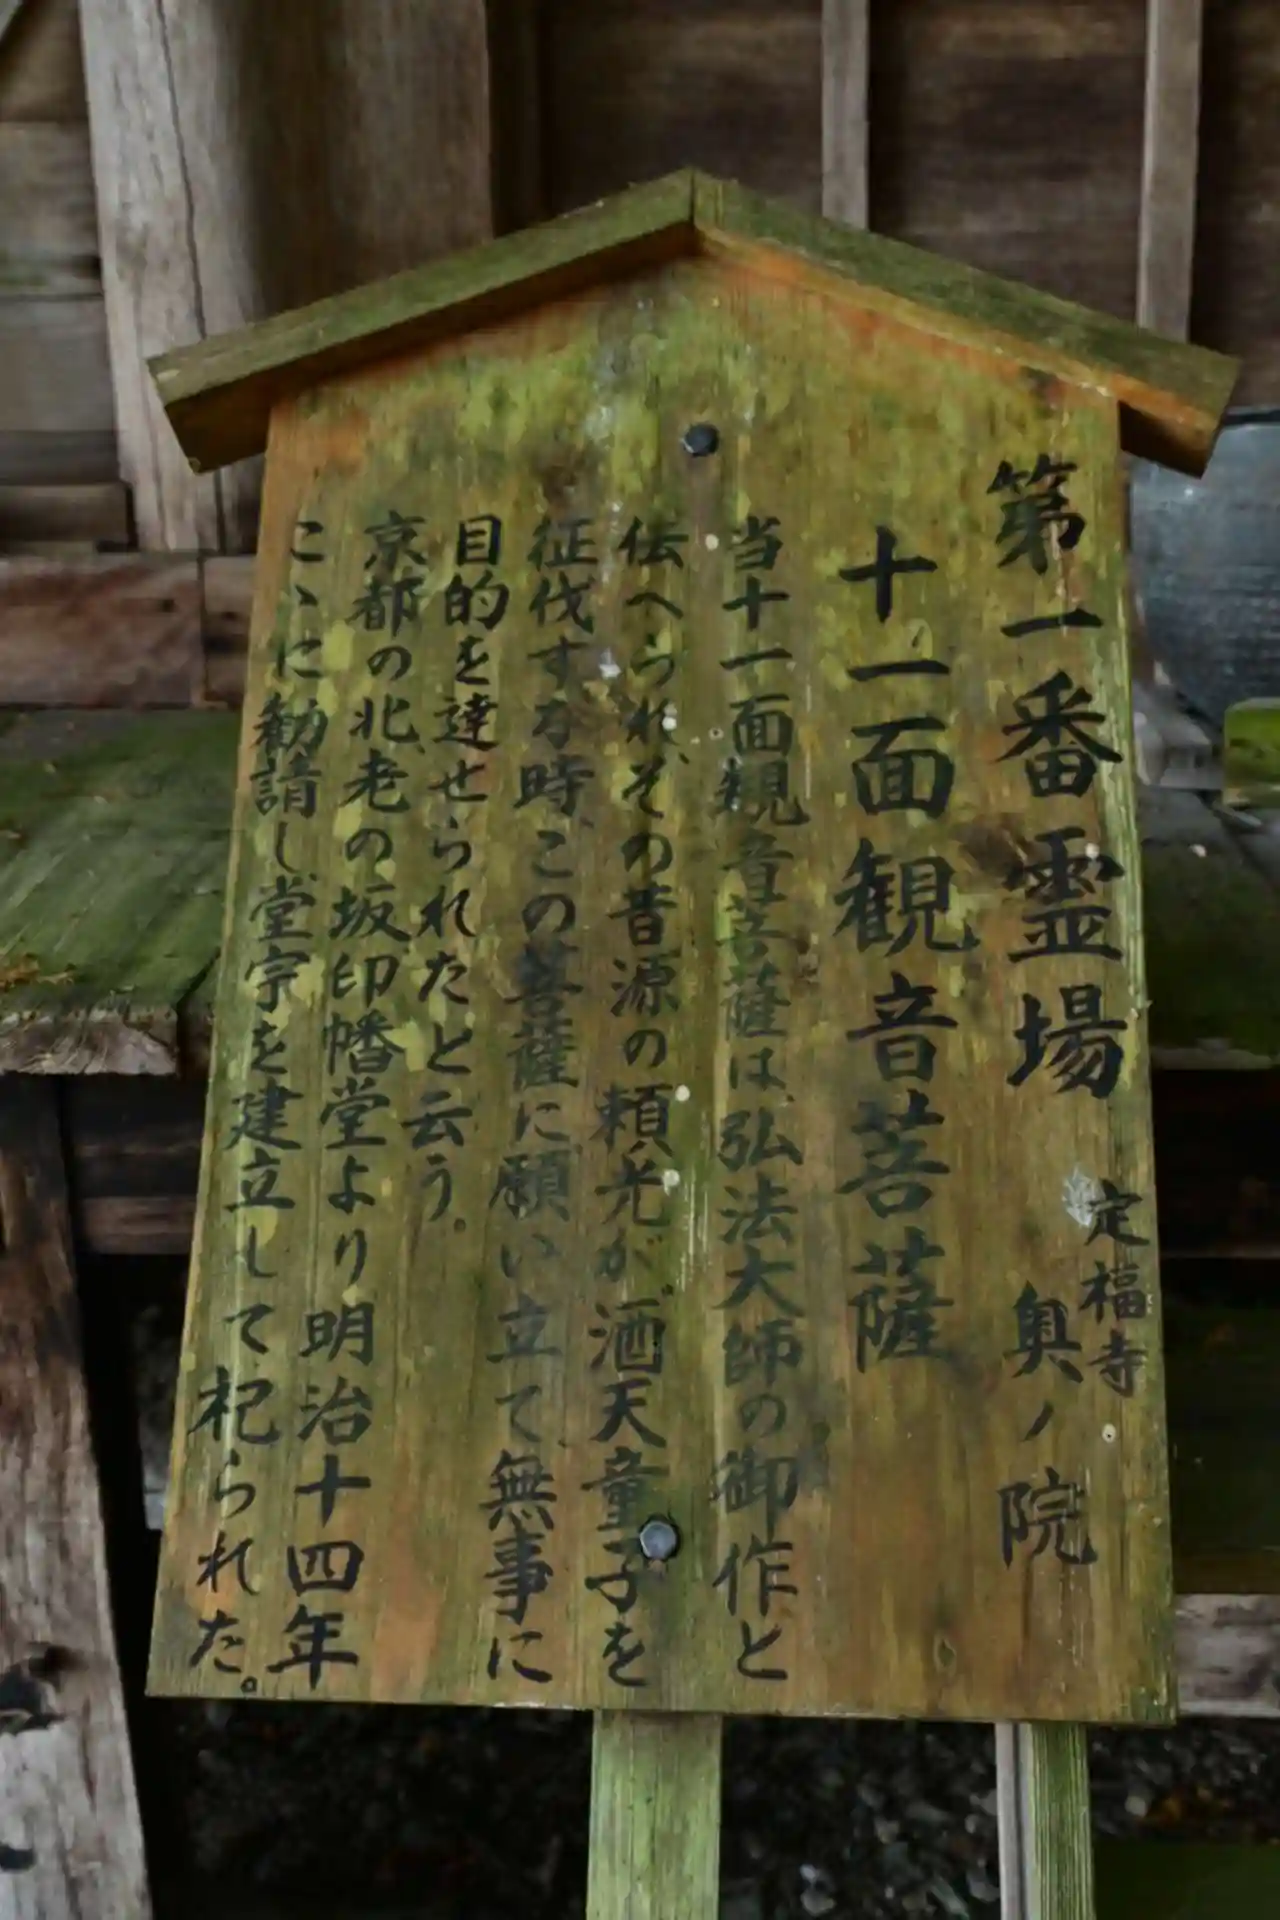 第一番霊場 定福寺 奥ノ院
十一面観音菩薩
当十一面観音菩薩は、弘法大師の御作と
伝へられ、その昔源の頼光が酒天童子を
征伐する時、この菩薩に願い立て、無事に
目的を達せられたと云う。
京都の北、老の坂、印幡堂より明治十四年
こゝに勧請し、堂宇を建立して、祀られた。